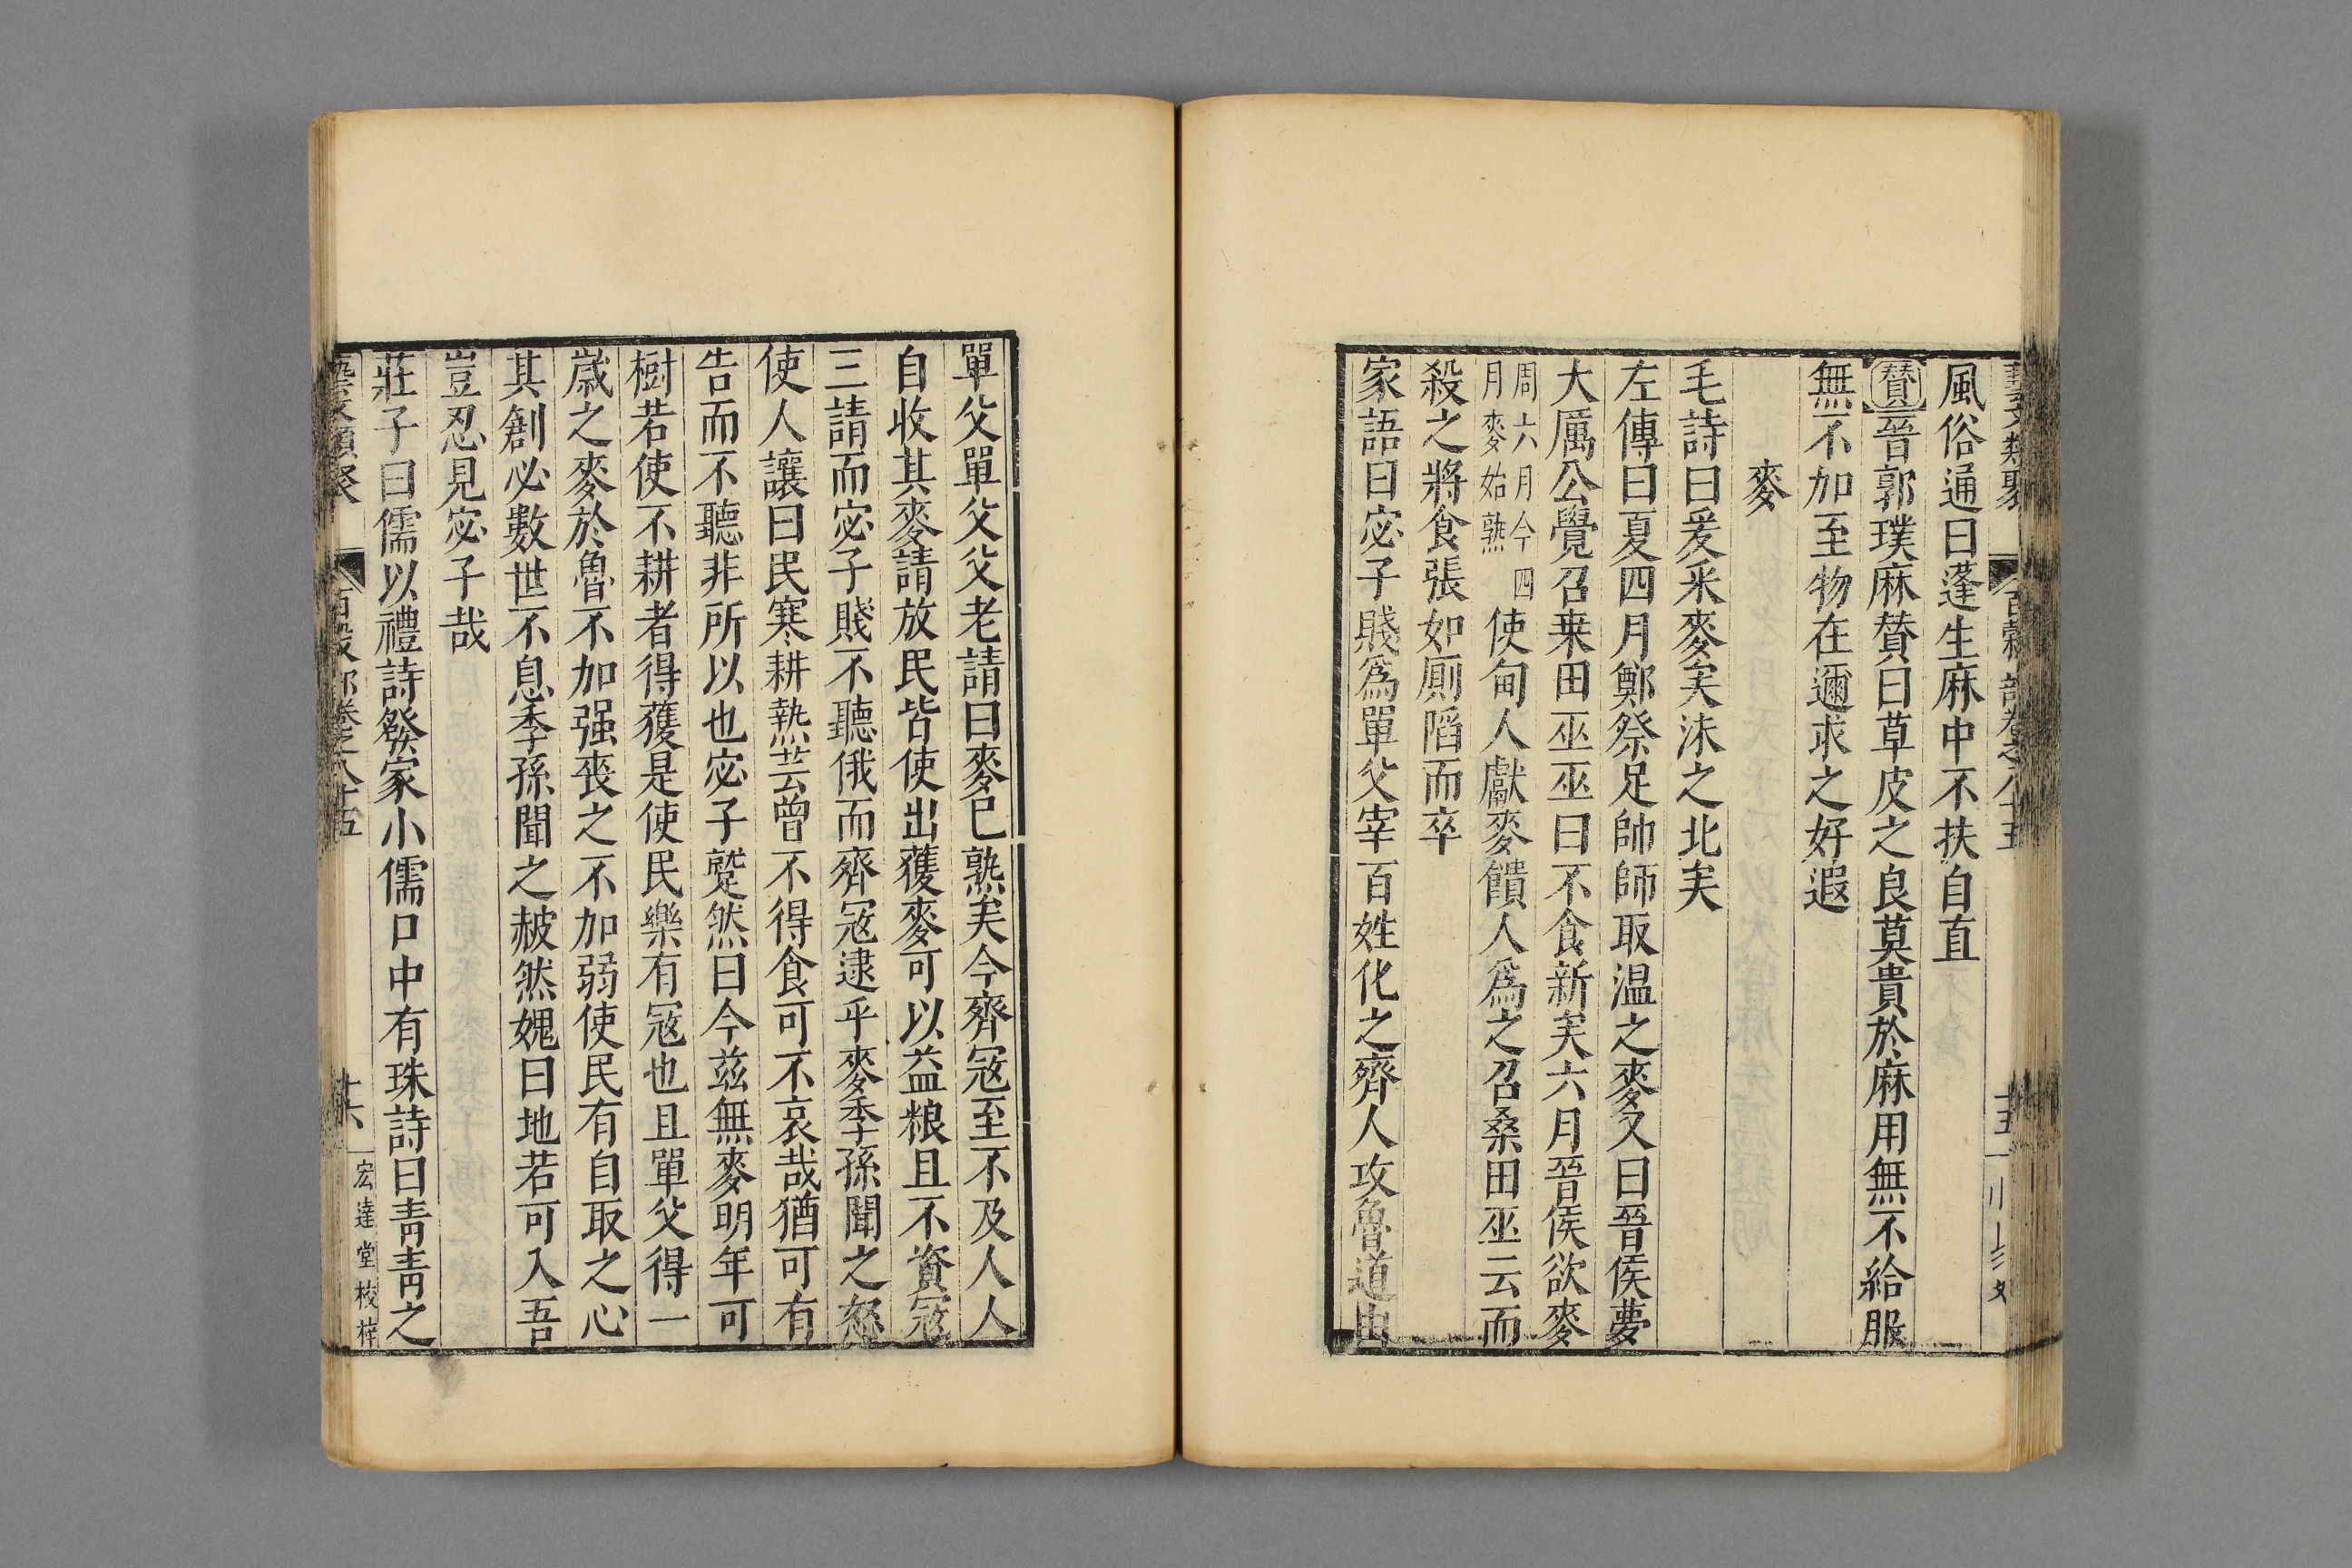 風俗通曰蓬生麻中不扶自直
贊晉郭璞麻贊曰草皮之良莫貴於麻用無不給服
無不加至物在邇求之好遐
麥
毛詩曰爰采麥矣沬之北矣
左傳曰夏四月鄭祭足帥師取温之麥又曰晉侯夢
大厲公覺召桒田巫巫曰不食新矣六月晉侯欲麥
周六月今四
月麥始熟
使甸人獻麥饋人為之召桑田巫云而
殺之將食張如廁陷而卒
家語曰宓子賤為單父宰百姓化之齊人攻魯道由
單父單父父老請曰麥已熟矣今齊寇至不及人人
自收其麥請放民皆使出獲麥可以益粮且不資寇
三請而宓子賤不聽俄而齊寇逮乎麥季孫聞之怒
使人讓曰民寒耕熱芸曾不得食可不哀哉猶可有
告而不聽非所以也宓子蹵然曰今茲無麥明年可
樹若使不耕者得獲是使民樂有寇也且單父得一
歲之麥於魯不加强喪之不加弱使民有自取之心
其創必數世不息季孫聞之赧然媿曰地若可入吾
豈忍見宓子哉
莊子曰儒以禮詩發冢小儒口中有珠詩曰靑靑之
藝文類聚 百穀部卷之八十五 十六 宏達堂校梓